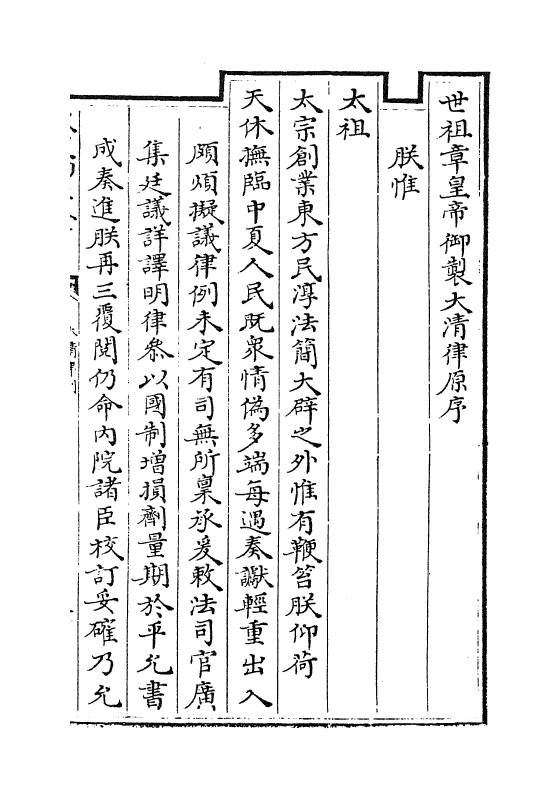 世祖章皇帝御製大清律原序
朕惟
太祖
太宗創業東方民淳法簡大辟之外惟有鞭笞朕仰荷
天休撫臨中夏人民既衆情偽多端每遇奏讞輕重出入
頗煩擬議律例未定有司無所稟承爰敕法司官廣
集廷議詳譯明律叅以國制增損劑量期於平允書
成奏進朕再三覆閱仍命内院諸臣校訂妥確乃允